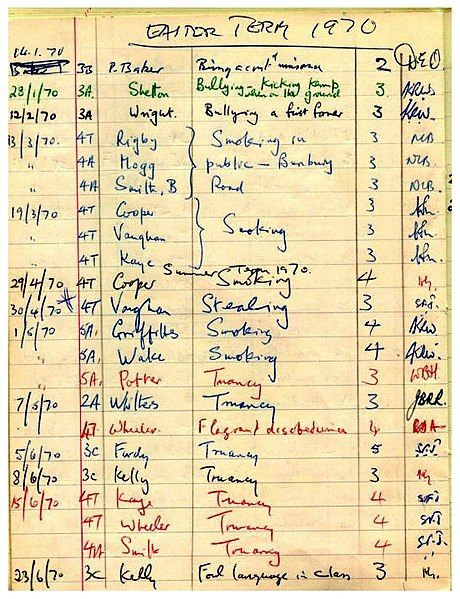 EASTER TERM 1970
14.1.70
3B P. Baker Being a constant nuisance 2
28/1/70 3A Skelton Bullying Kicking Kemp 3
when on the ground
12/2/70 3A Wright. Bullying a first former 3
3/3/70 4T Rigby Smoking in 3 NLB
" 4A Hogg public – Banbury 3 NLB.
" 4A Smith, B Road 3 NLB.
19/3/70 4T Cooper 3
" 4T Vaughan Smoking 3
" 4T Kaye 3
Summer Term 1970.
29/4/70 4T Cooper Smoking 4
30/4/70 4T Vaughan Stealing 3
1/5/70 5A, Griffiths Smoking 4
" 5A, Wake Smoking 4
" 5A, Potter Truancy 3 WBH
7/5/70 2A Walters Truancy 3 JBRR.
4T Wheeler Flagrant disobedience 4
5/6/70 3C Purdy Truancy 5
8/6/70 3C Kelly Truancy 3
15/6/70 4T Kaye Truancy 4
4T Wheeler Truancy 4
4A Smith Truancy 4
23/6/70 3C Kelly Foul language in class 3